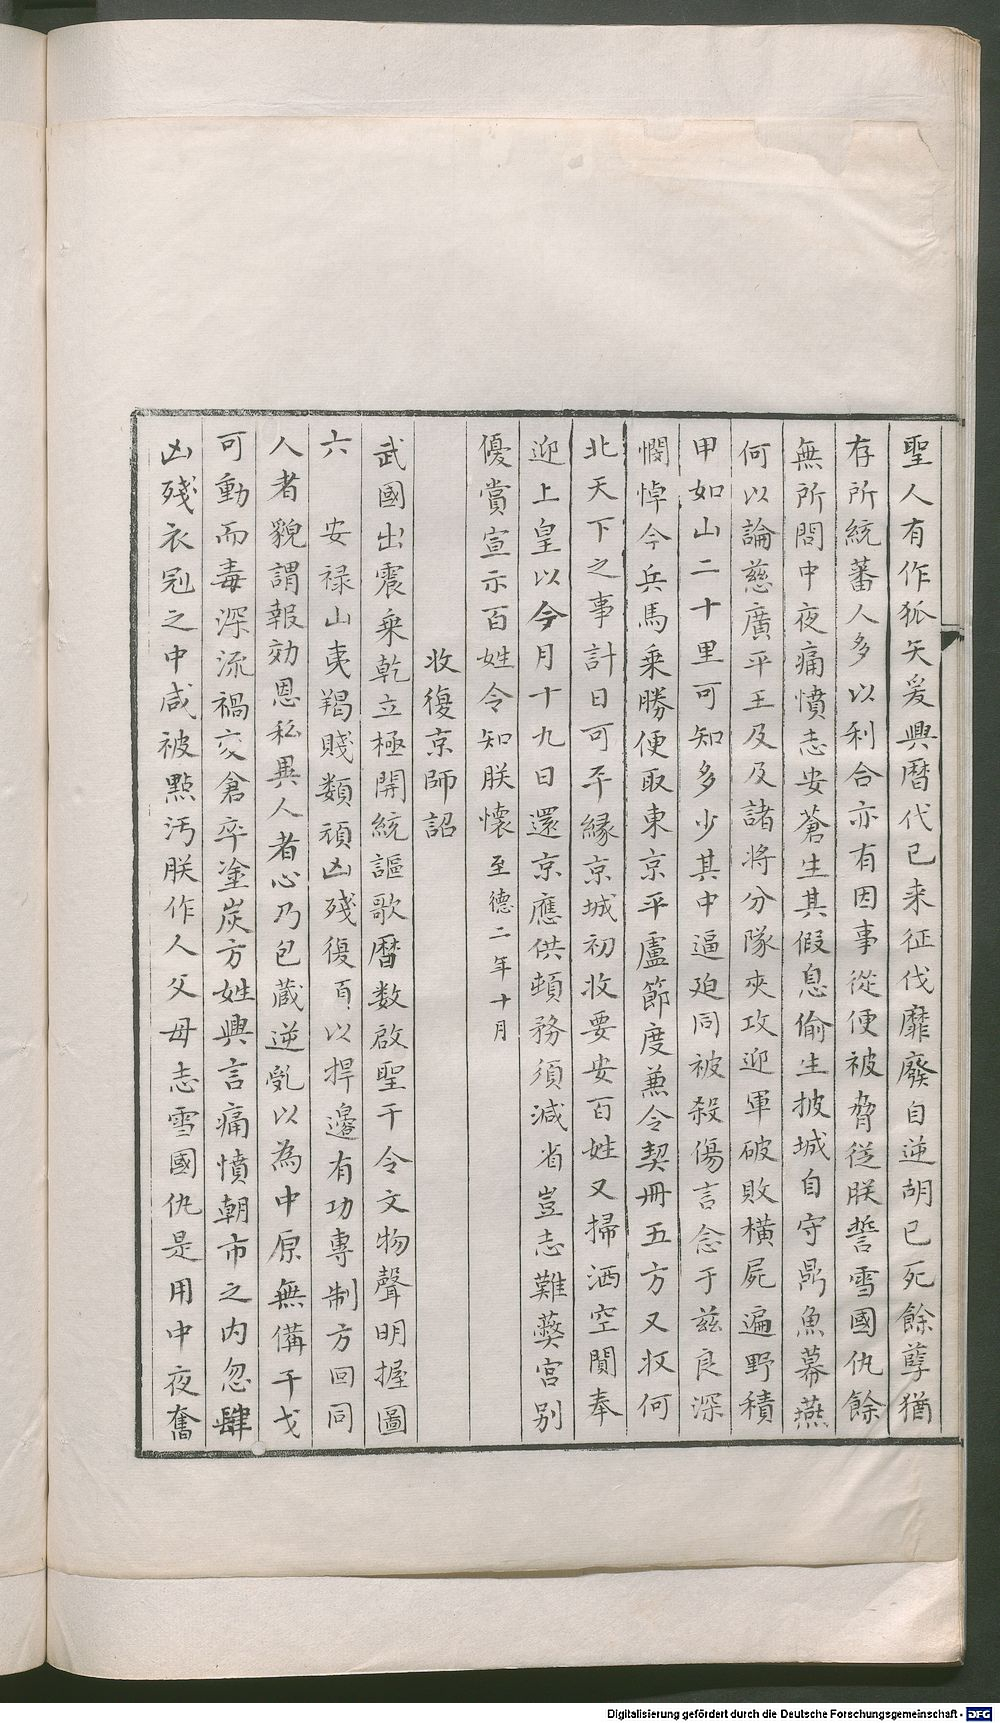 聖人有作狐矢爰興曆代已来征伐靡廢自逆胡已死餘孽猶
存所統蕃人多以利合亦有因事從便被脅従朕誓雪國仇餘
無所問中夜痛憤志安蒼生其假息偷生披城自守鼎魚幕燕
何以論慈廣平王及及諸将分隊夾攻迎軍破敗橫屍遍野積
甲如山二十里可知多少其中逼迫同被殺傷言念于茲良深
憫悼今兵馬乗勝便取東京平盧節度兼令契丹五方又収何
北天下之事計日可平緣京城初收要安百姓又掃洒空閒奉
迎上皇以今月十九日還京應供頓務須減省豈志難䕫宫别
優賞宣示百姓令知朕懷至德二年十月
收復京師詔
武國出震乗乾立極開統謳歌曆数啟聖千令文物聲明握圖
六 安禄山夷羯賤類頑凶殘復頁以捍邊有功專制方回同
人者貌謂報効恩私異人者心乃包藏逆亂以為中原無備干戈
可動而毒深流禍交倉卒塗炭方姓興言痛憤朝市之内忽肆
凶殘衣冠之中咸被點污朕作人父母志雪國仇是用中夜奮
Digitalisierung gefördert durch die Deutsche Forschungsgemeinschaft - DFG